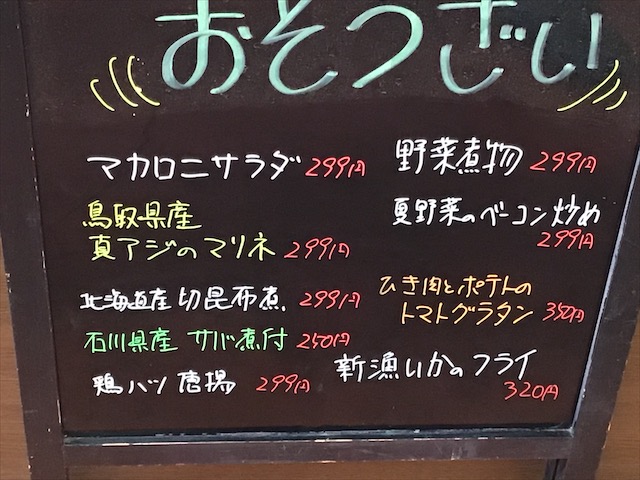 おそうざい
マカロニサラダ 299円
鳥取県産
真アジのマリネ 299円
北海道産 切昆布煮 299円
石川県産 サバ煮付 250円
鶏ハツ唐揚 299円
野菜煮物 299円
夏野菜のベーコン炒め
299円
ひき肉とポテトの
トマトグラタン 350円
新漁いかのフライ
320円